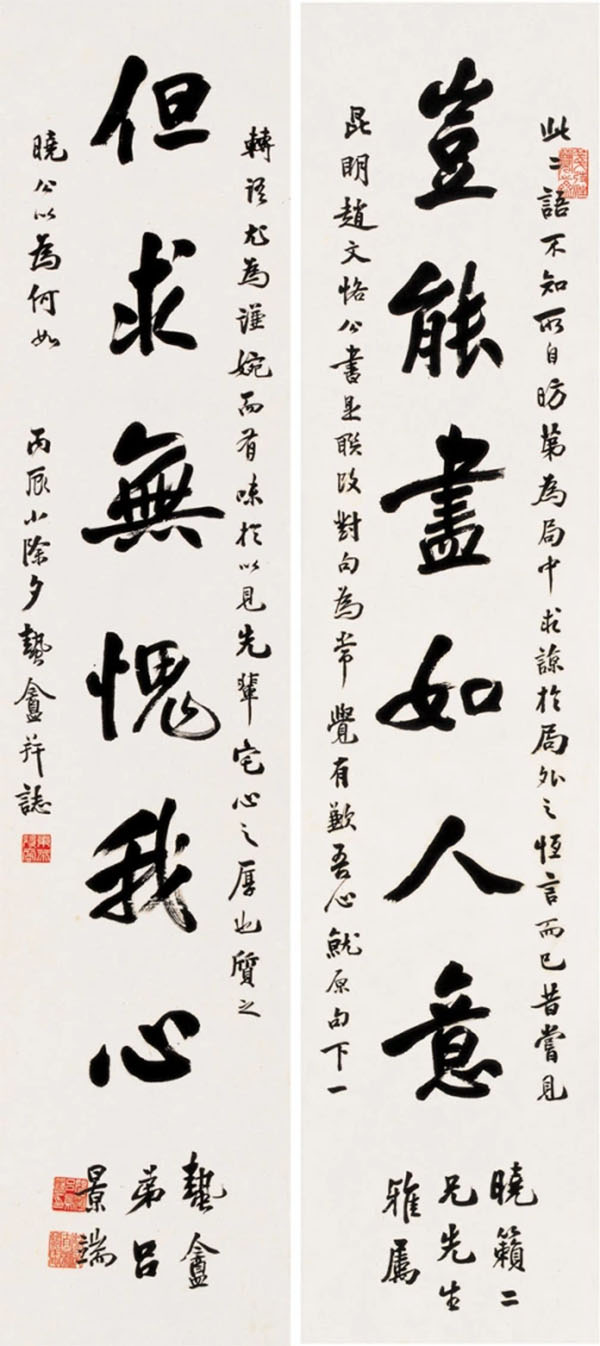 豈能盡如人意
但求無愧我心
此二語不知所自昉第為局中求諒於局外之恆言而已昔嘗見
昆明趙文恪公書是聯改對句為常覺有歉吾心就原句下一
轉語尤為謹婉而有味於以見先輩宅心之厚也質之
曉公以為何如 丙辰小除夕蟄盦并誌
曉籟二
兄先生
雅屬
蟄盦
弟呂
景端